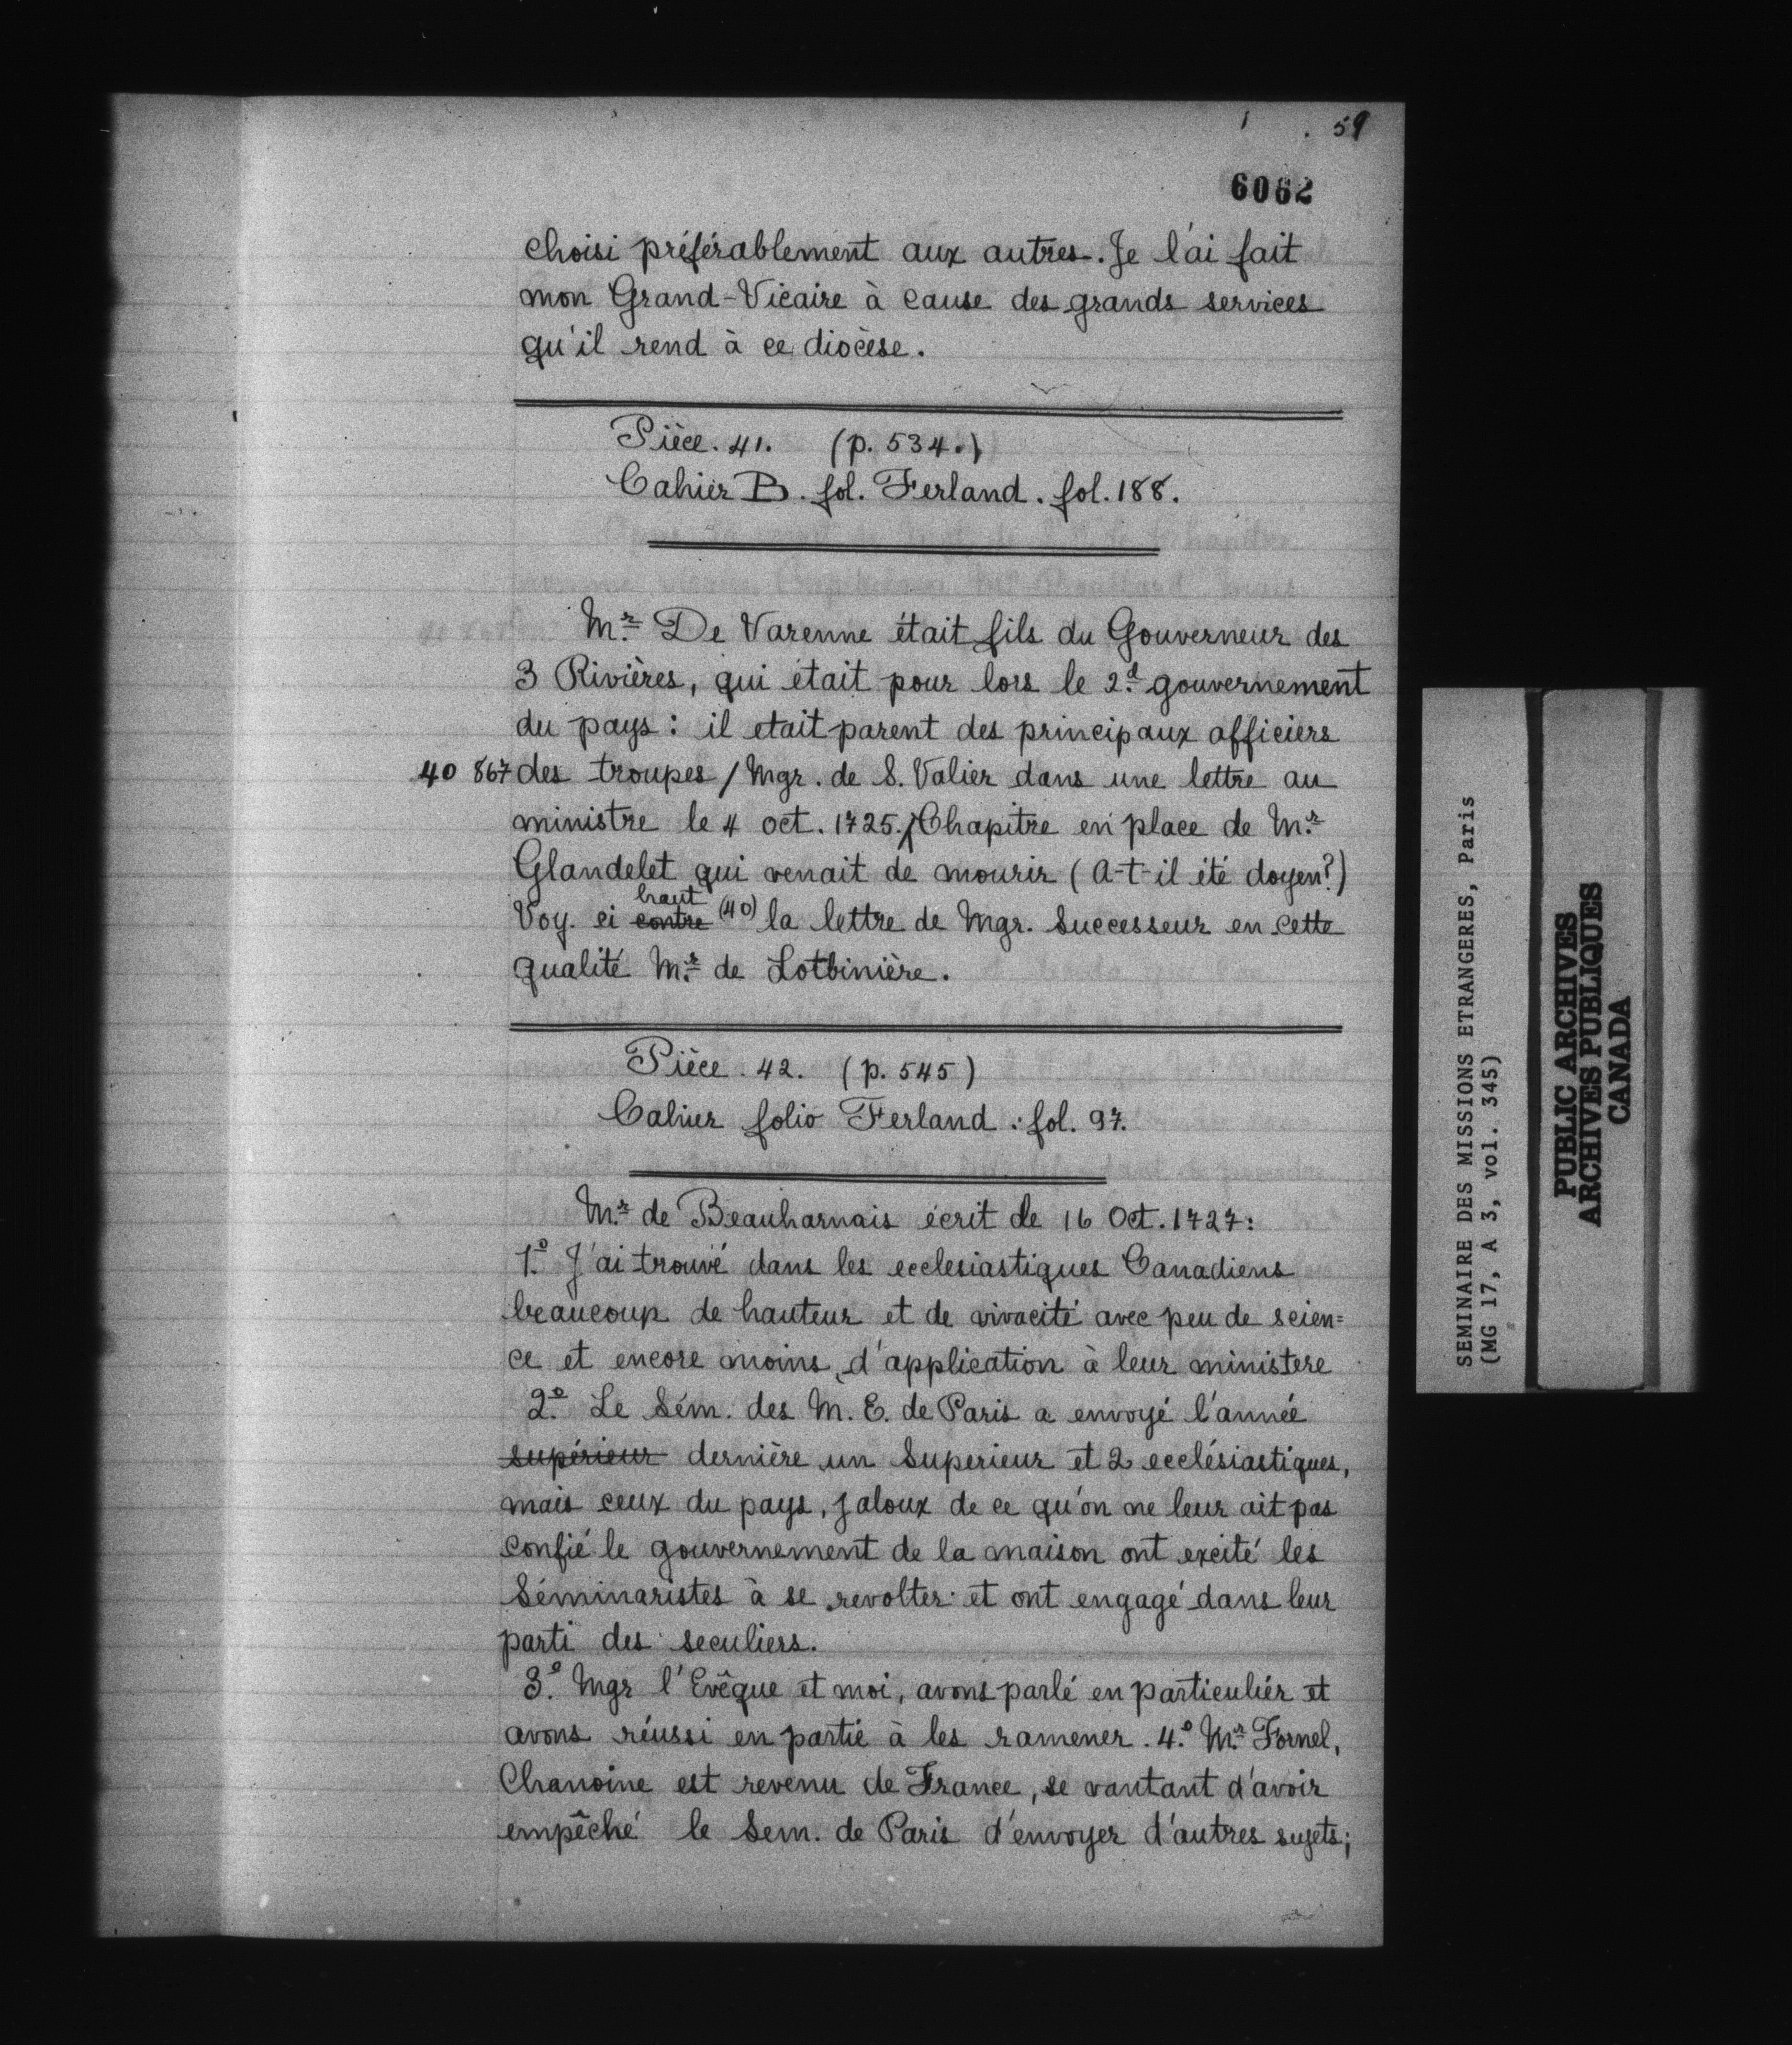 59
6062
choisi préférablement aux autres. Je l'ai fait
mon Grand-Vicaire à cause des grands services
qu'il rend à ce diocèse.
Pièce. 41. (p. 534.)
Cahier B. fol. Ferland. fol. 188.
Mr. De Varenne était fils du Gouverneur des
3 Rivières, qui était pour lors le 2.d gouvernement
du pays : il etait parent des principaux officiers
40 867 des troupes / Mgr. de S. Valier dans une lettre au
ministre le 4 oct. 1725. / Chapitre en place de Mr.
Glandelet qui venait de mourir (A-t-il été doyen?)
Voy. ci contre haut (40) la lettre de Mgr. Successeur en cette
qualité Mr. de Lotbinière.
Pièce. 42. (p. 545)
Cahier folio Ferland : fol. 97.
Mr. de Beauharnais écrit le 16 Oct. 1727:
1.º J'ai trouvé dans les ecclesiastiques Canadiens
beaucoup de hauteur et de vivacité avec peu de scien=
ce et encore moins d'application à leur ministere
2.º Le Sém. des M. E. de Paris a envoyé l'année
supérieur dernière un Superieur et 2 ecclésiastiques,
mais ceux du pays, jaloux de ce qu'on ne leur ait pas
confié le gouvernement de la maison ont excité les
Séminaristes à se revolter et ont engagé dans leur
parti des seculiers.
3.º Mgr l'Evêque et moi, avons parlé en particulier et
avons réussi en partie à les ramener. 4.º Mr. Fornel,
Chanoine est revenu de France, se vantant d'avoir
empêché le Sem. de Paris d'envoyer d'autres sujets;
SEMINAIRE DES MISSIONS ETRANGERES, Paris
(MG 17, A 3, vol. 345)
PUBLIC ARCHIVES
ARCHIVES PUBLIQUES
CANADA